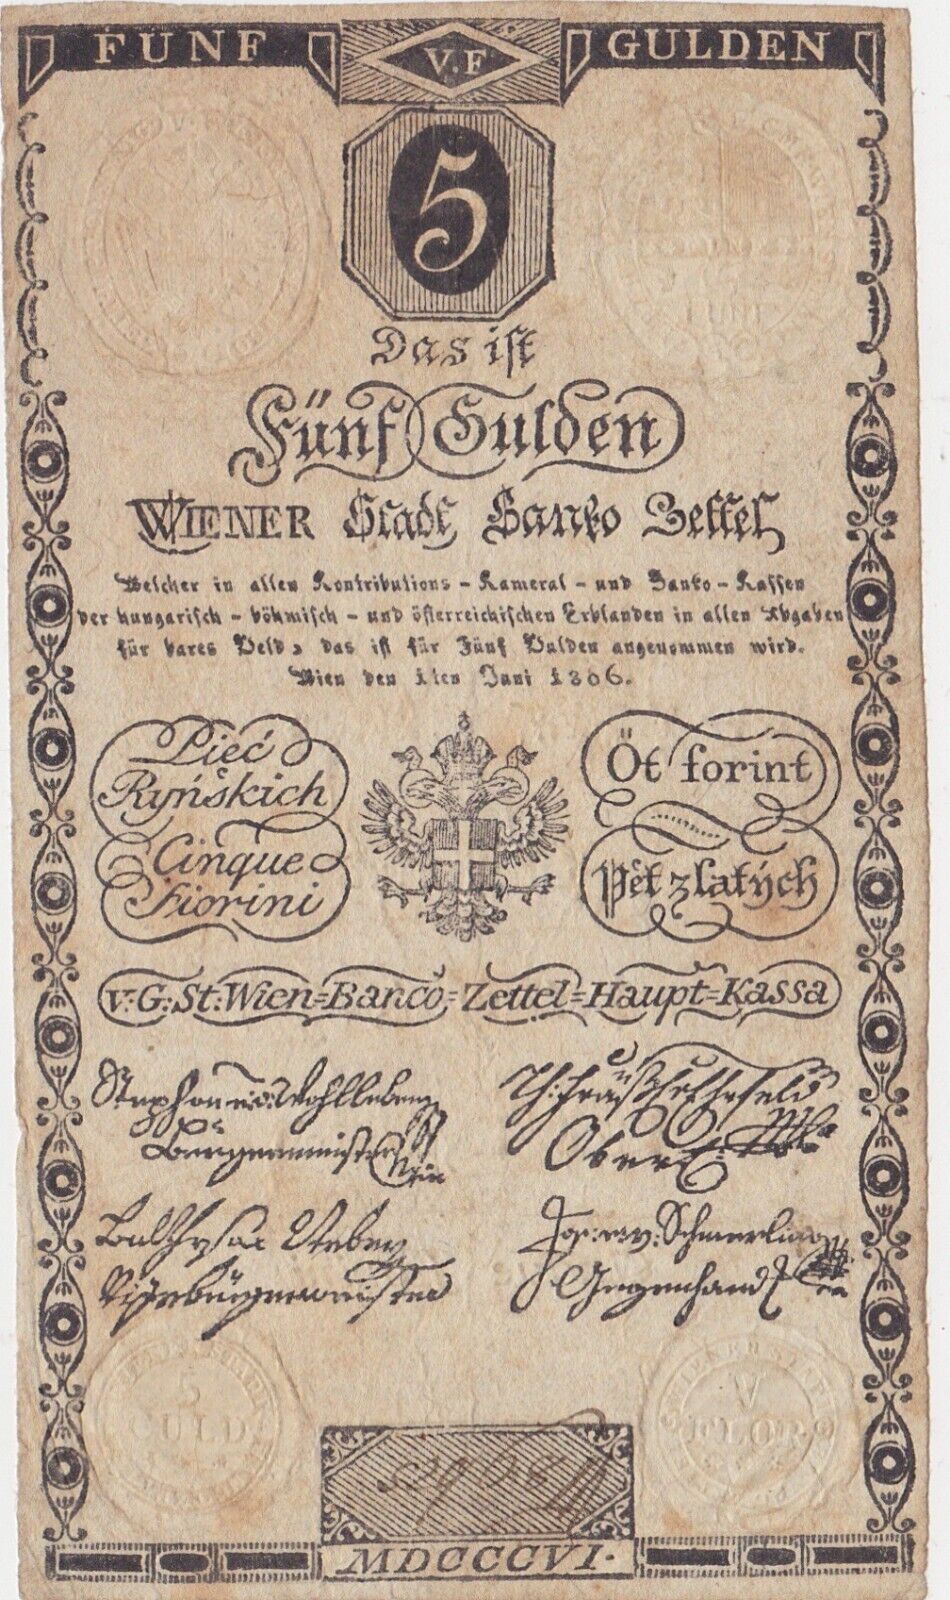 FÜNF
V.F
GULDEN
5
Das ist
Fünf Gulden
WIENER Stadt Banko Zettel
Welcher in allen Kontributions - Kameral - und Banko - Kassen
der hungarisch - böhmisch - und österreichischen Erblanden in allen Abgaben
für bares Geld, das ist für Fünf Gulden angenommen wird.
Wien den 1ten Juni 1806.
Pieć
Ryńskich
Cinque
Fiorini
Öt forint
Pět zlatých
V:G:St:Wien=Banco=Zettel=Haupt=Kassa
Stephan v: Wohlleben
Bürgermeister
Vizebürgermeister
Schmerling
Gegenhand
5
GULD
V
FLOR
MDCCCVI.